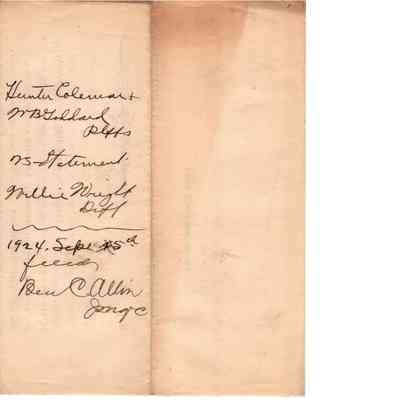 Hunter Coleman &
W B Goddard
Plffs
vs Statement
Willie Wright
Deft
1924. Sept 25th
filed
Ben C. Allin